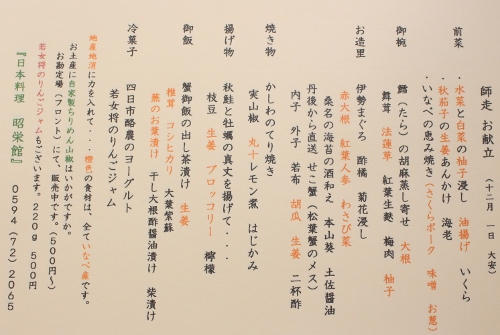 師走 お献立 (十二月 一日 大安)
前菜
・水菜と白菜の柚子浸し 油揚げ いくら
・秋茄子の生姜あんかけ 海老
・いなべの恵み焼き(さくらポーク 味噌 お葱)
御椀
鱈(たら)の胡麻蒸し寄せ 大根
舞茸 法蓮草 紅葉生麩 梅肉 柚子
お造里
伊勢まぐろ 酢橘 菊花浸し
赤大根 紅葉人参 わさび菜
桑名の海苔の酒和え 本山葵 土佐醤油
丹後から直送 せこ蟹(松葉蟹のメス)
内子 外子 若布 胡瓜 生姜 二杯酢
焼き物
かしわのてり焼き
実山椒 丸十レモン煮 はじかみ
揚げ物
秋鮭と牡蠣の真丈を揚げて・・・
枝豆 生姜 ブロッコリー 檸檬
御飯
蟹御飯の出し茶漬け 生姜
椎茸 コシヒカリ 大葉紫蘇
蕪のお葉漬け 干し大根酢醤油漬け 柴漬け
冷菓子
四日市酪農のヨーグルト
若女将のりんごジャム
地産地消に力を入れて・・・橙色の食材は、全ていなべ産です。
お土産に自家製ちりめん山椒はいかがですか。
お勘定場(フロント)にて、販売中です。(500円~)
若女将のりんごジャムもございます。220g 500円
『日本料理 昭栄館』 0594(72)2065